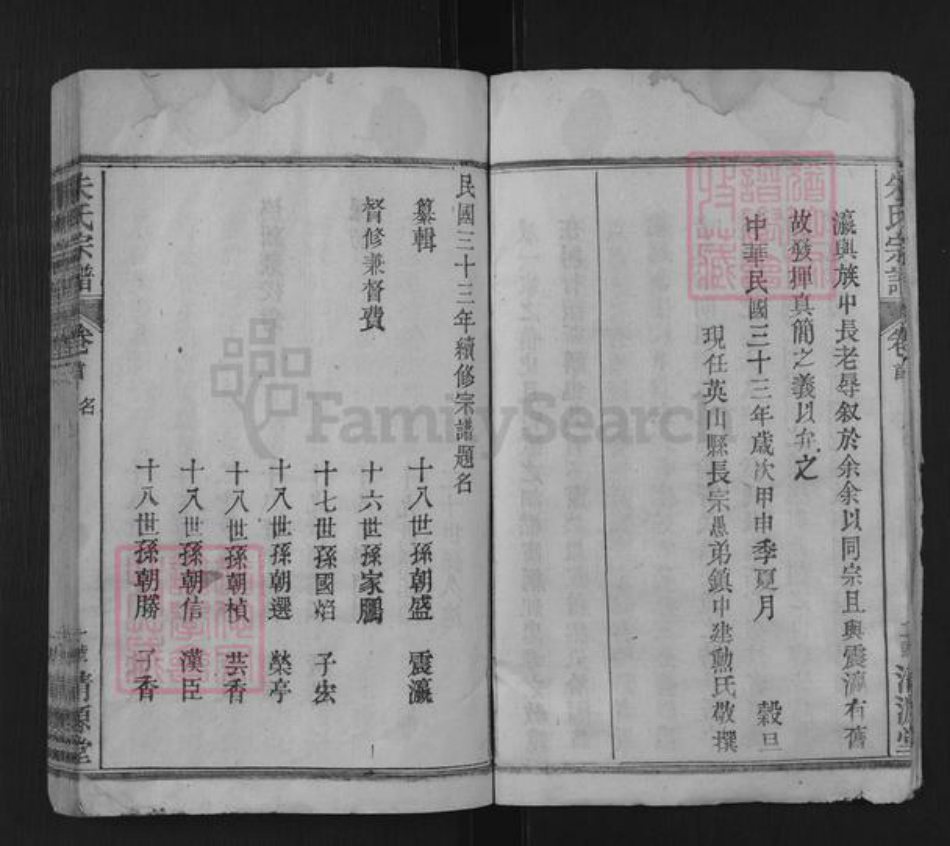 朱氏宗譜
卷首
清源堂
瀛與族中長老尋叙於余余以同宗且與震瀛有舊
故發揮真簡之義以弁之
中華民國三十三年歲次甲申季夏月 穀旦
現任英山縣長宗愚弟鎮中建勳氏敬撰
民國三十三年續修宗譜題名
纂輯
十八世孫朝盛 震瀛
督修兼督費
十六世孫家鵬
十七世孫國焰 子宏
十八世孫朝選 榮亭
十八世孫朝楨 芸香
十八世孫朝信 漢臣
十八世孫朝勝 子香
朱氏宗譜
卷首
名
清源堂
FamilySearch